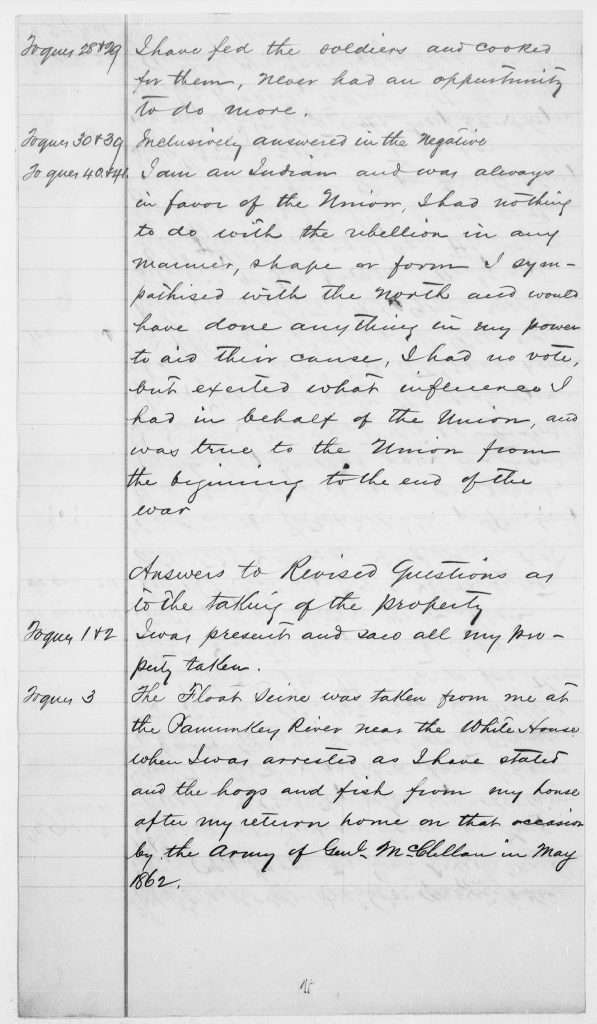 To ques 28 & 29 I have fed the soldiers and cooked
for them, never had an oppertunity
to do more.
To ques 30 & 39 Inclusively answered in the negative
To ques 40 & 41. I am an Indian and was always
in favor of the Union, I had nothing
to do with the rebellion in any
manner, shape or form I sym-
pathised with the North and would
have done anything in my power
to aid their cause, I had no vote,
but exerted what influence I
had in behalf of the Union, and
was true to the Union from
the bigining to the end of the
war
Answers to Revised Questions as
to the taking of the property
To ques 1 & 2 I was present and saw all my pro-
perty taken.
To ques 3 The Float Seine was taken from me at
the Pamunkey River near the White House
when I was arrested as I have stated
and the hogs and fish from my house
after my return home on that occasion
by the Army of Genl. McClellan in May
1862.